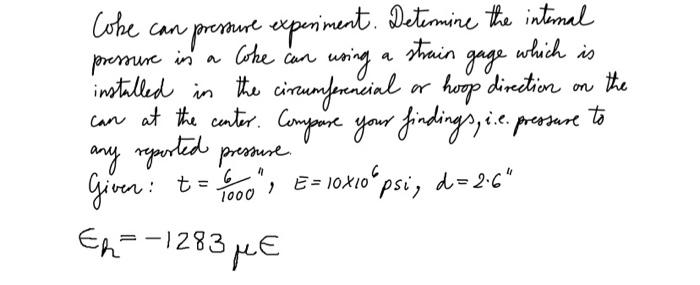 Coke can pressure experiment. Determine the internal
pressure in a Coke can using a strain gage which is
installed in the circumferencial or hoop direction on the
can at the center. Compare your findings, i.e. pressure to
any reported pressure.
Given: t = 6/1000", E = 10x10⁶ psi, d = 2.6"
ϵh = -1283 μϵ